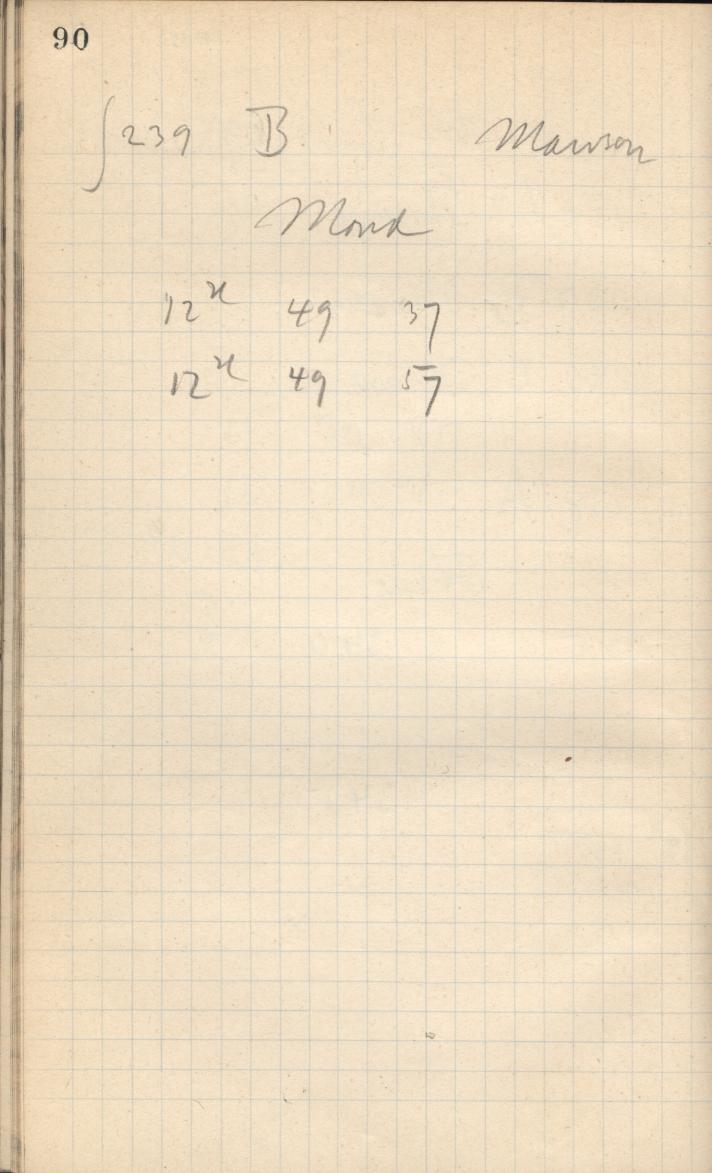 90
∫239 B Mawson
Mond
12ʰ 49 37
12ʰ 49 57